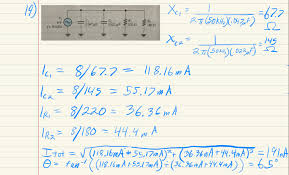 19)
X_C1 = 1 / 2π(50kHz)(.047µF) = 67.7 Ω
X_C2 = 1 / 2π(50kHz)(.022µF) = 145 Ω
I_C1 = 8/67.7 = 118.16 mA
I_C2 = 8/145 = 55.17 mA
I_R1 = 8/220 = 36.36 mA
I_R2 = 8/180 = 44.4 mA
I_tot = √(118.16mA + 55.17mA)² + (36.36mA + 44.4mA)² = 191mA
θ = tan⁻¹ ((118.16mA + 55.17mA) ÷ (36.36mA + 44.4mA)) = 65°